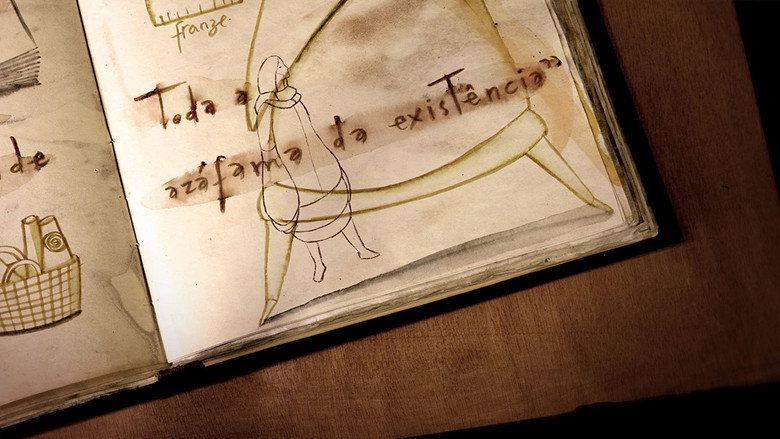 franze.
Toda a
azáfama da existência”
de